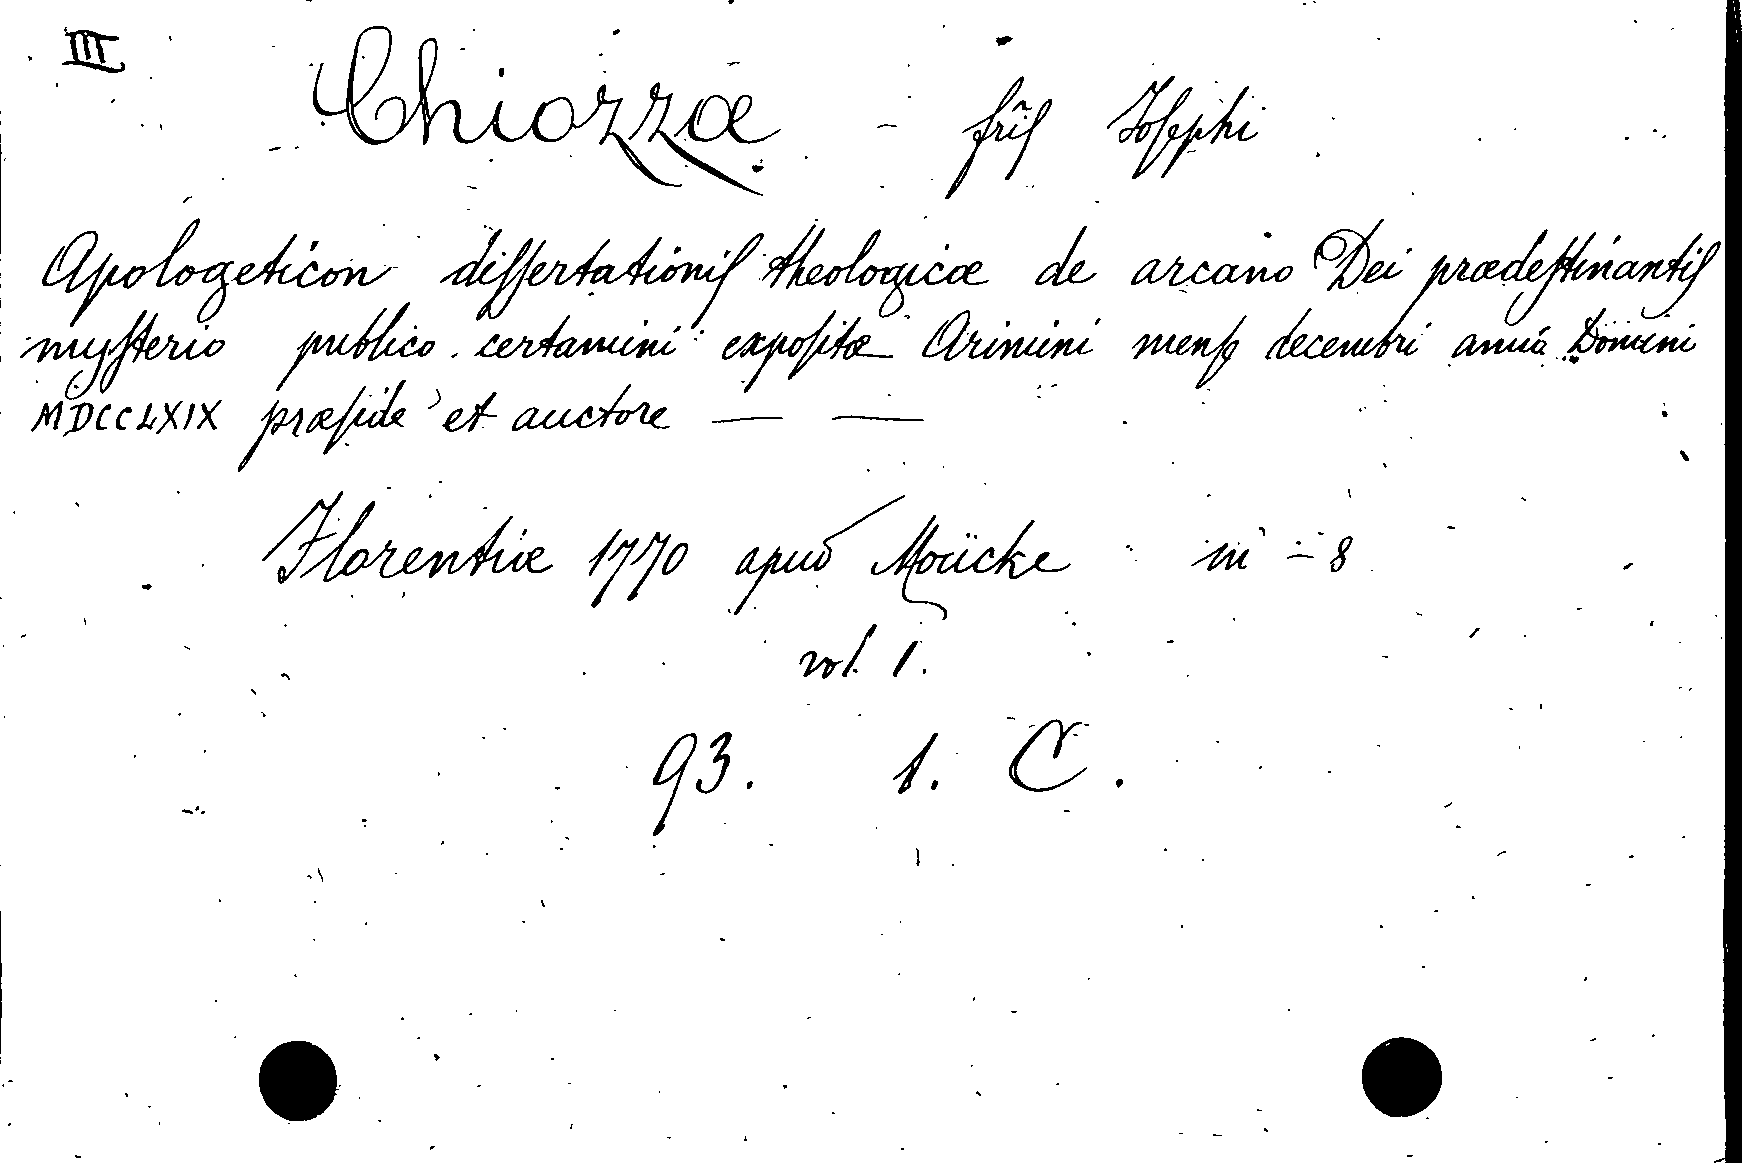 III
Chiozzæ - frĩs Josephi
Apologeticon dissertationis theologicæ de arcano Dei prædestinantis
mysterio publico certamini expositæ Arimini mense decembri anni Domini
MDCCLXIX præside et auctore — —
Florentiæ 1770 apud Moücke in - 8
vol. 1.
93. 1. C.